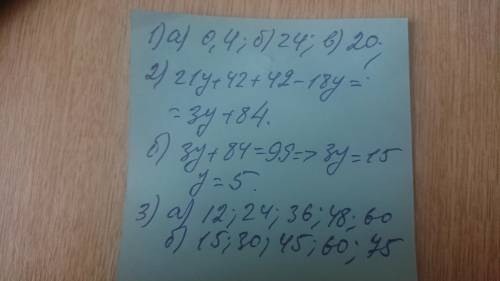 1) а) 0,4; б) 24; в) 20;
2) 21y+42+42-18y=
=3y+84.
б) 3y+84=99=>3y=15
y=5.
3) а) 12; 24; 36; 48; 60
б) 15; 30; 45; 60; 75